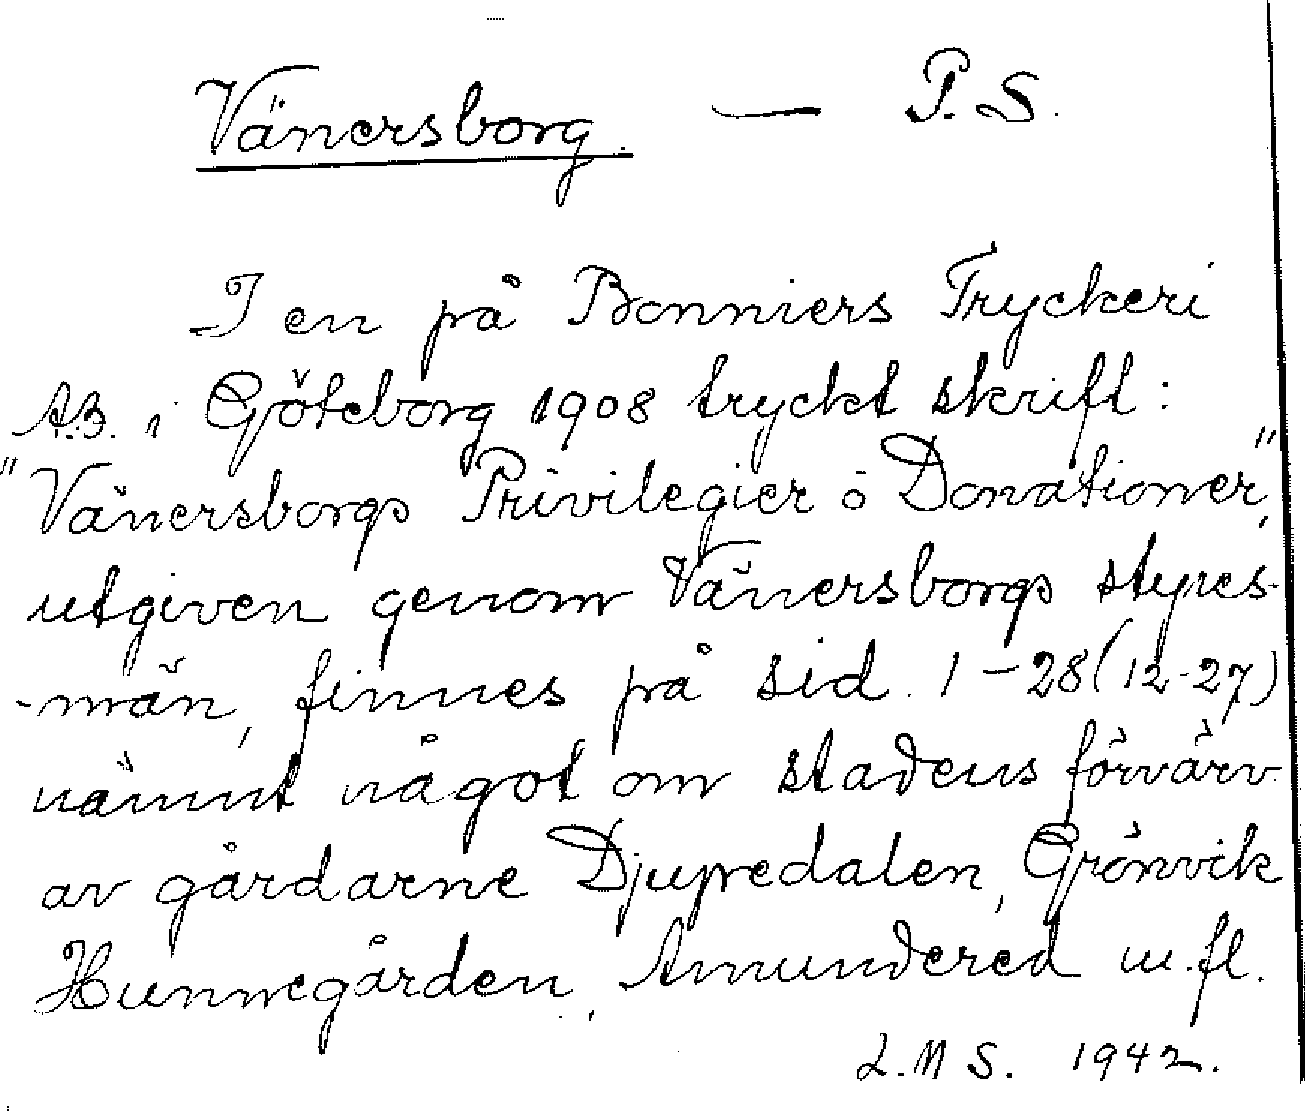 Vänersborg. — P.S.
I en på Bonniers Tryckeri
A.B. i Göteborg 1908 tryckt skrift:
"Vänersborgs Privilegier o Donationer",
utgiven genom Vänersborgs styres-
-män, finnes på sid. 1-28 (12-27)
nämnt något om stadens förvärv
av gårdarne Djupedalen, Grönvik
Hunnegården, Amundered m.fl.
L.M S. 1942.